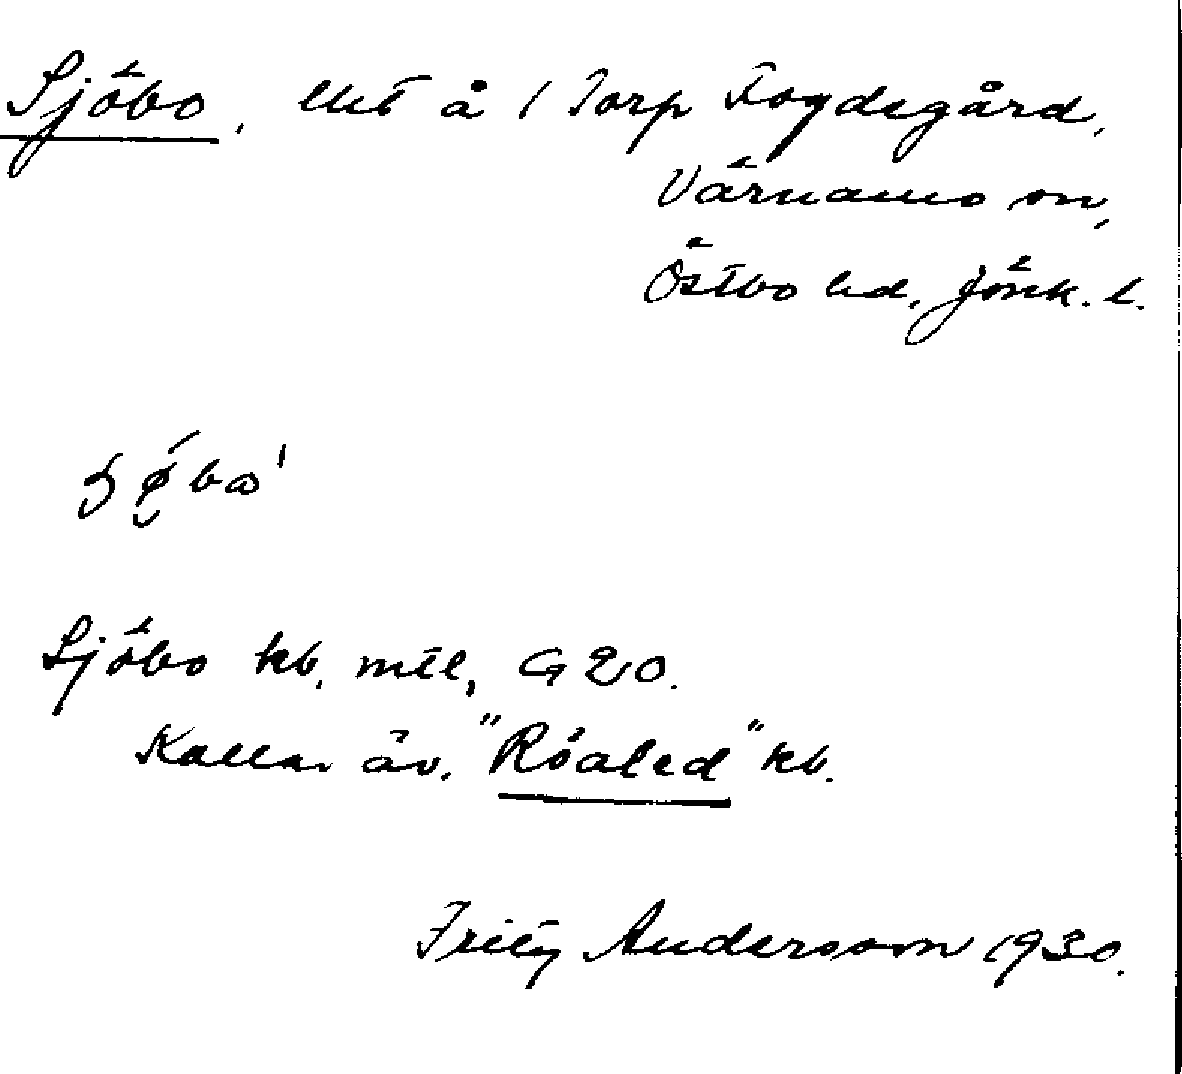 Sjöbo, lht å 1 Torp Fogdegård,
Värnamo sn,
Östbo hd, Jönk. l.
Sjöbo kb, mtl, G 20.
Kallas äv. "Róaled" kb.
Fritz Andersson 1930.